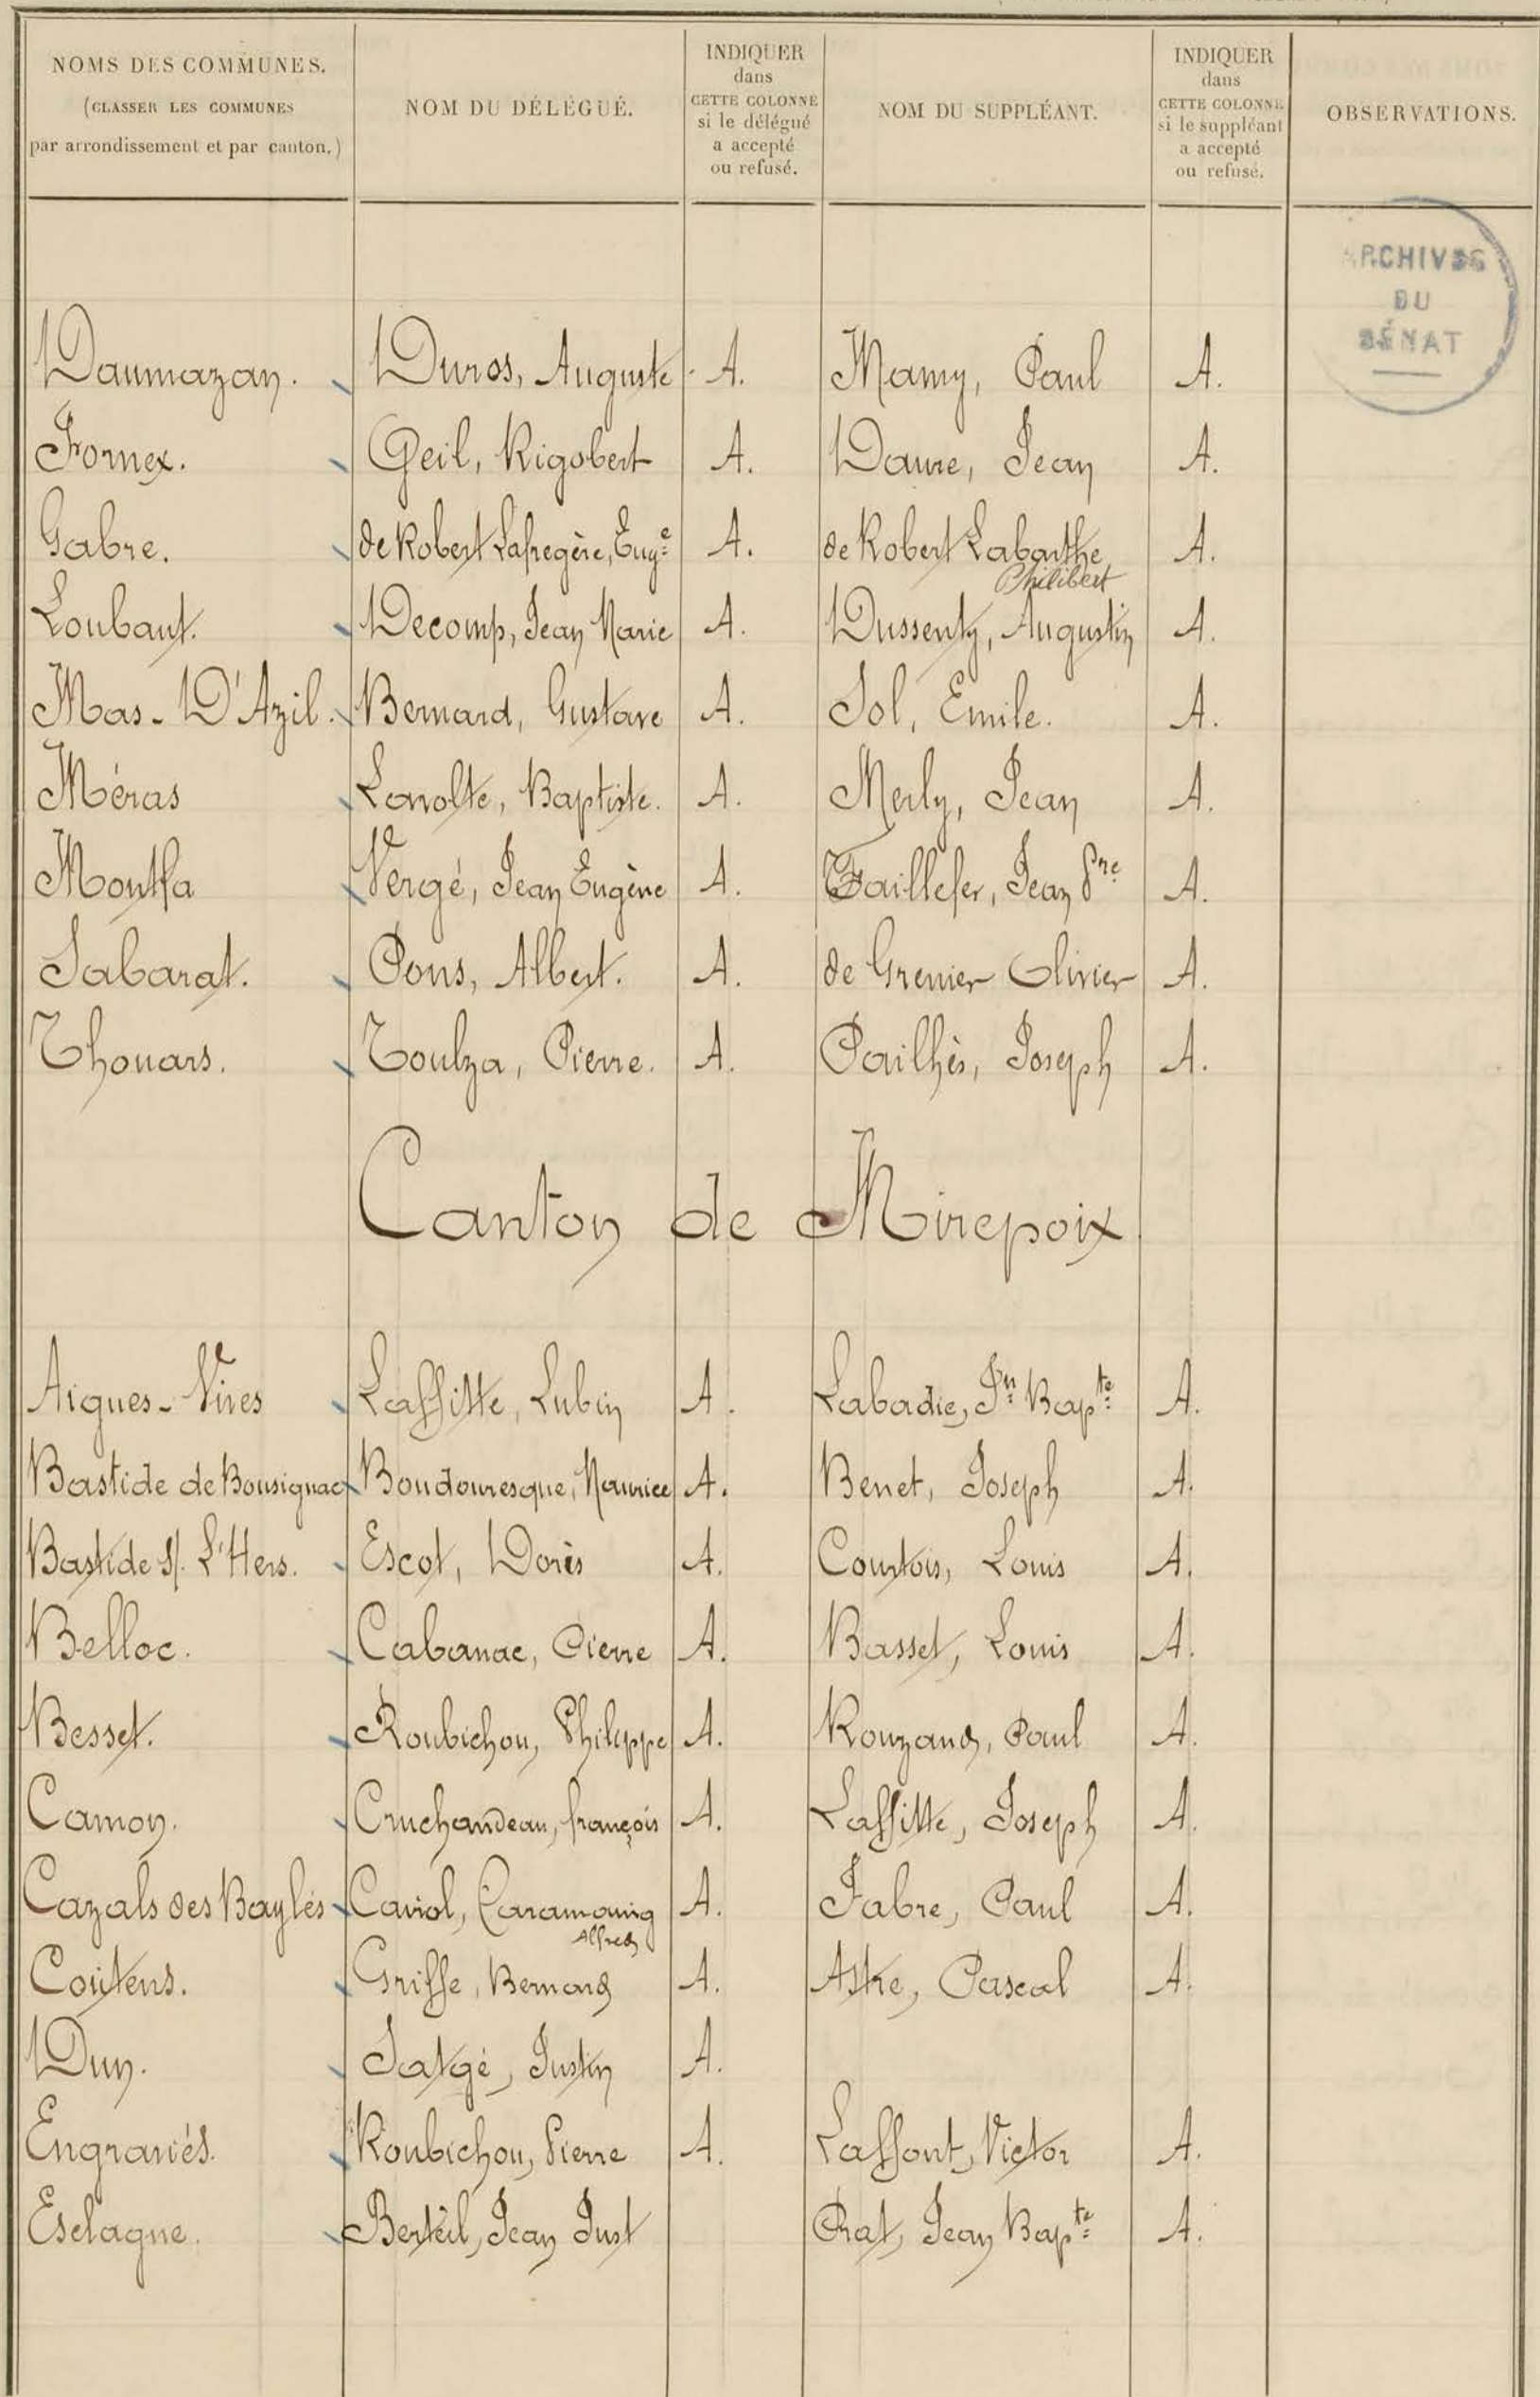 NOMS DES COMMUNES.
(CLASSER LES COMMUNES
par arrondissement et par canton.)
NOM DU DÉLÉGUÉ.
INDIQUER
dans
CETTE COLONNE
si le délégué
a accepté
ou refusé.
NOM DU SUPPLÉANT.
INDIQUER
dans
CETTE COLONNE
si le suppléant
a accepté
ou refusé.
OBSERVATIONS.
ARCHIVES
DU
SÉNAT
Daumazan. Duros, Auguste A. Mamy, Paul A.
Fornex. Geil, Rigobert A. Daure, Jean A.
Gabre. de Robert Lafregère, Eugᵉ A. de Robert Labarthe A.
Philibert
Loubaut. Decomp, Jean Marie A. Dussenty, Augustin A.
Mas-D'Azil. Bernard, Gustave A. Sol, Emile. A.
Méras Lavolte, Baptiste. A. Merly, Jean A.
Montfa Vergé, Jean Eugène A. Taillefer, Jean Pʳᵉ A.
Sabarat. Pons, Albert. A. de Grenier Olivier A.
Thouars. Toulza, Pierre. A. Pailhès, Joseph A.
Canton de Mirepoix
Aigues-Vives Laffitte, Lubin A. Labadie, Jⁿ Bapᵗᵉ A.
Bastide de Bousignac Boudouresque, Maurice A. Benet, Joseph A.
Bastide s/. L'Hers. Escot, Dorès A. Courtois, Louis A.
Belloc. Cabanac, Pierre A. Basset, Louis A.
Besset. Roubichou, Philippe A. Rouzaud, Paul A.
Camon. Cruchandeau, françois A. Laffitte, Joseph A.
Cazals des Baylès Caviol, Caramaing A. Fabre, Paul A.
Alfred
Coutens. Griffe, Bernard A. Astre, Pascal A.
Dun. Satgé, Justin A.
Engraviés. Roubichou, Pierre A. Laffont, Victor A.
Esclagne. Berteil, Jean Just Prat, Jean Bapᵗᵉ A.